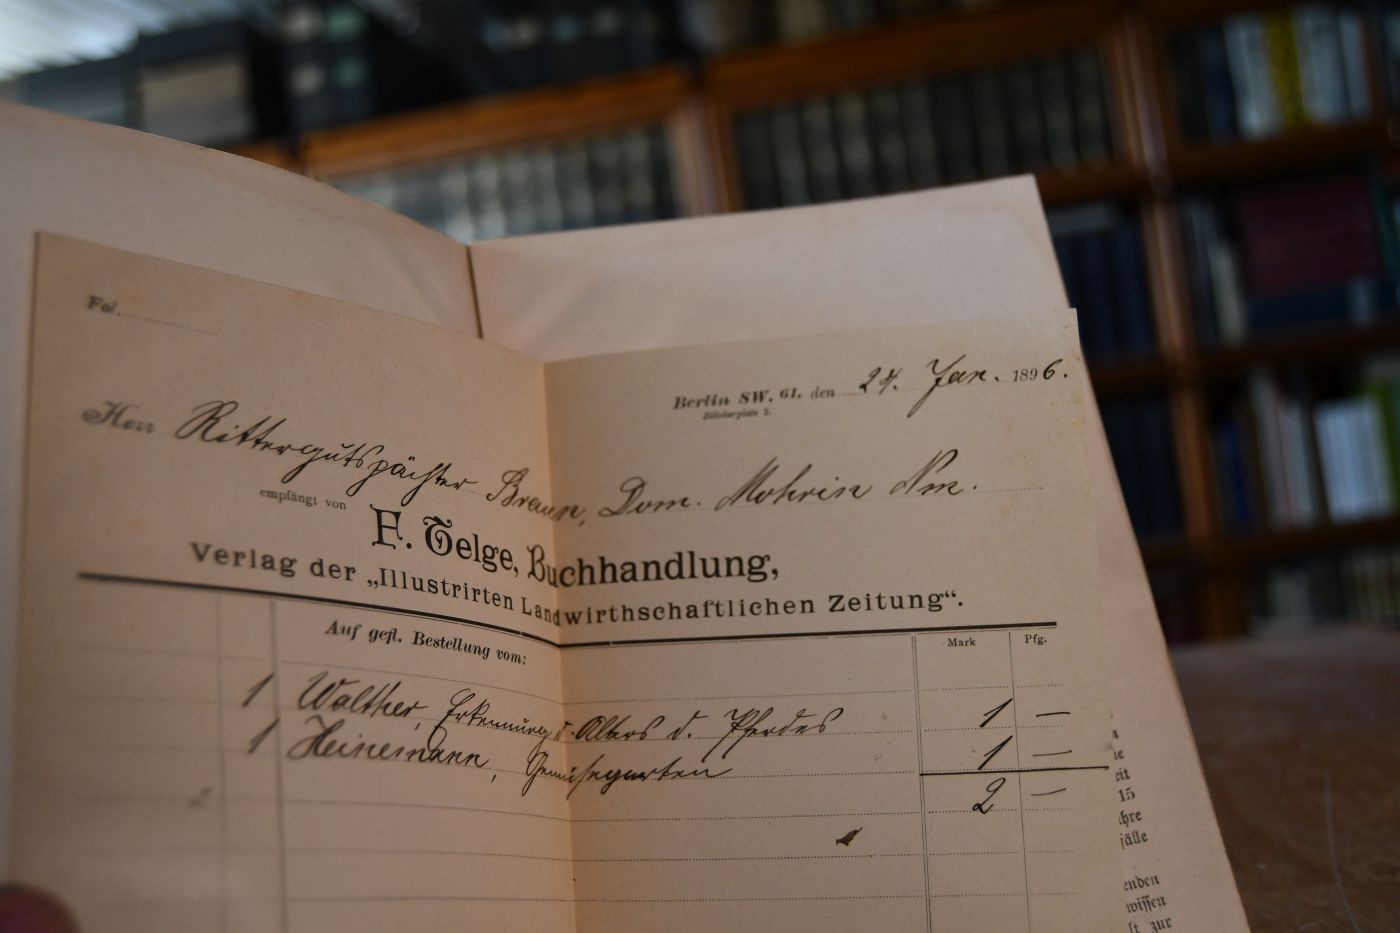 Fol.
Berlin SW. 61, den 24. Jan. 1896.
Blücherplatz 2.
Herr Rittergutspächter Braun, Dom. Mohrin Nm.
empfängt von
F. Telge, Buchhandlung,
Verlag der „Illustrirten Landwirthschaftlichen Zeitung“.
Auf gefl. Bestellung vom:
Mark Pfg.
1 Walther, Erkennung d. Alters d. Pferdes 1 —
1 Heinemann, Gemüsegarten 1 —
2 —
15
enden
wissen
zur